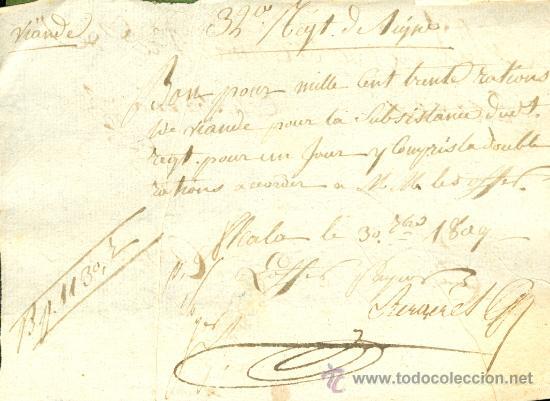 viande
32eme Régt. de Ligne
Bon pour mille cent trente rations
de viande pour la Subsistance dudt.
regt. pour un Jour y Compris la double
rations accorder a M.M. les offers.
le 30. 1809
B.p. 1130. r
L'offer
www.todocoleccion.net